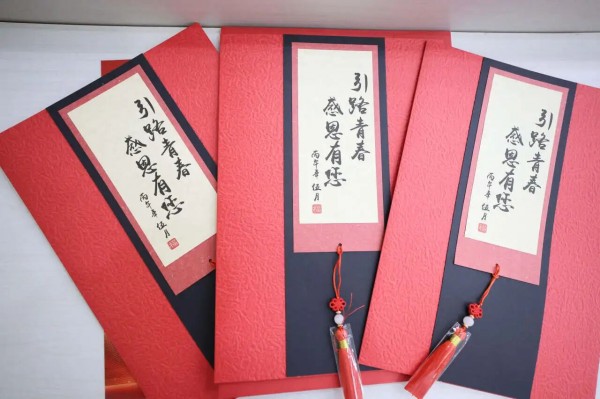 引路青春
感恩有您
丙午年 伍月
引路青春
感恩有您
丙午年 伍月
引路青春
感恩有您
丙午年 伍月